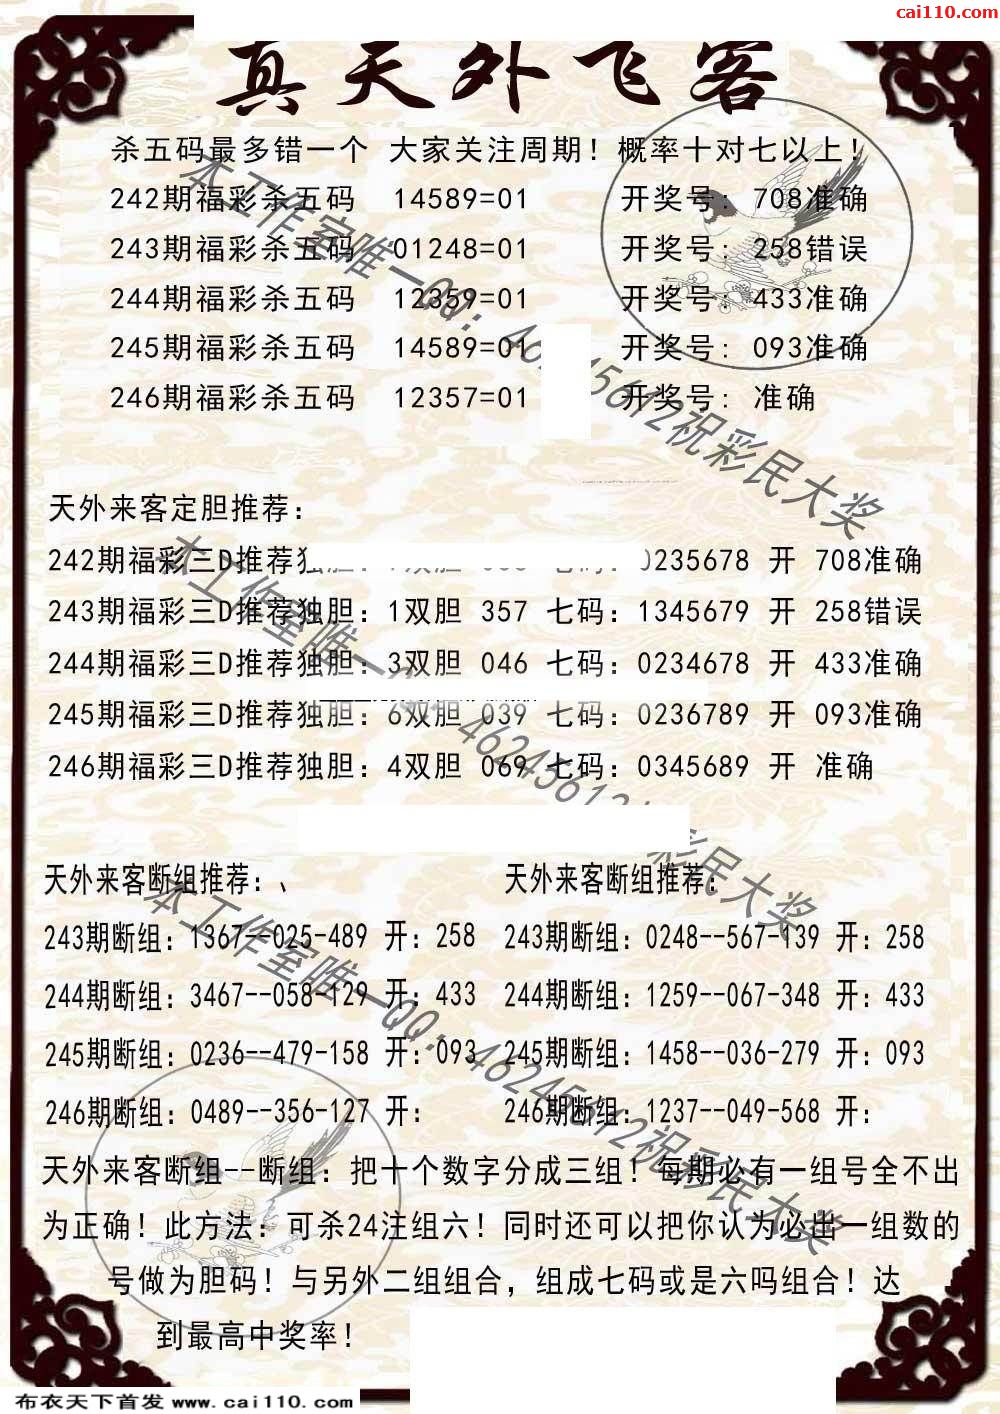 cai110.com
真天外飞客
杀五码最多错一个 大家关注周期！概率十对七以上！
242期福彩杀五码 14589=01 开奖号：708准确
243期福彩杀五码 01248=01 开奖号：258错误
244期福彩杀五码 12359=01 开奖号：433准确
245期福彩杀五码 14589=01 开奖号：093准确
246期福彩杀五码 12357=01 开奖号：准确
天外来客定胆推荐：
242期福彩三D推荐独胆： 双胆 七码：0235678 开 708准确
243期福彩三D推荐独胆：1双胆 357 七码：1345679 开 258错误
244期福彩三D推荐独胆：3双胆 046 七码：0234678 开 433准确
245期福彩三D推荐独胆：6双胆 039 七码：0236789 开 093准确
246期福彩三D推荐独胆：4双胆 069 七码：0345689 开 准确
天外来客断组推荐：、 天外来客断组推荐：
243期断组：1367--025-489 开：258 243期断组：0248--567-139 开：258
244期断组：3467--058-129 开：433 244期断组：1259--067-348 开：433
245期断组：0236--479-158 开：093 245期断组：1458--036-279 开：093
246期断组：0489--356-127 开： 246期断组：1237--049-568 开：
天外来客断组--断组：把十个数字分成三组！每期必有一组号全不出
为正确！此方法：可杀24注组六！同时还可以把你认为必出一组数的
号做为胆码！与另外二组组合，组成七码或是六吗组合！达
到最高中奖率！
本工作室唯一QQ：46245612祝彩民大奖
本工作室唯一QQ：46245612祝彩民大奖
本工作室唯一QQ：46245612祝彩民大奖
布衣天下首发 www.cai110.com